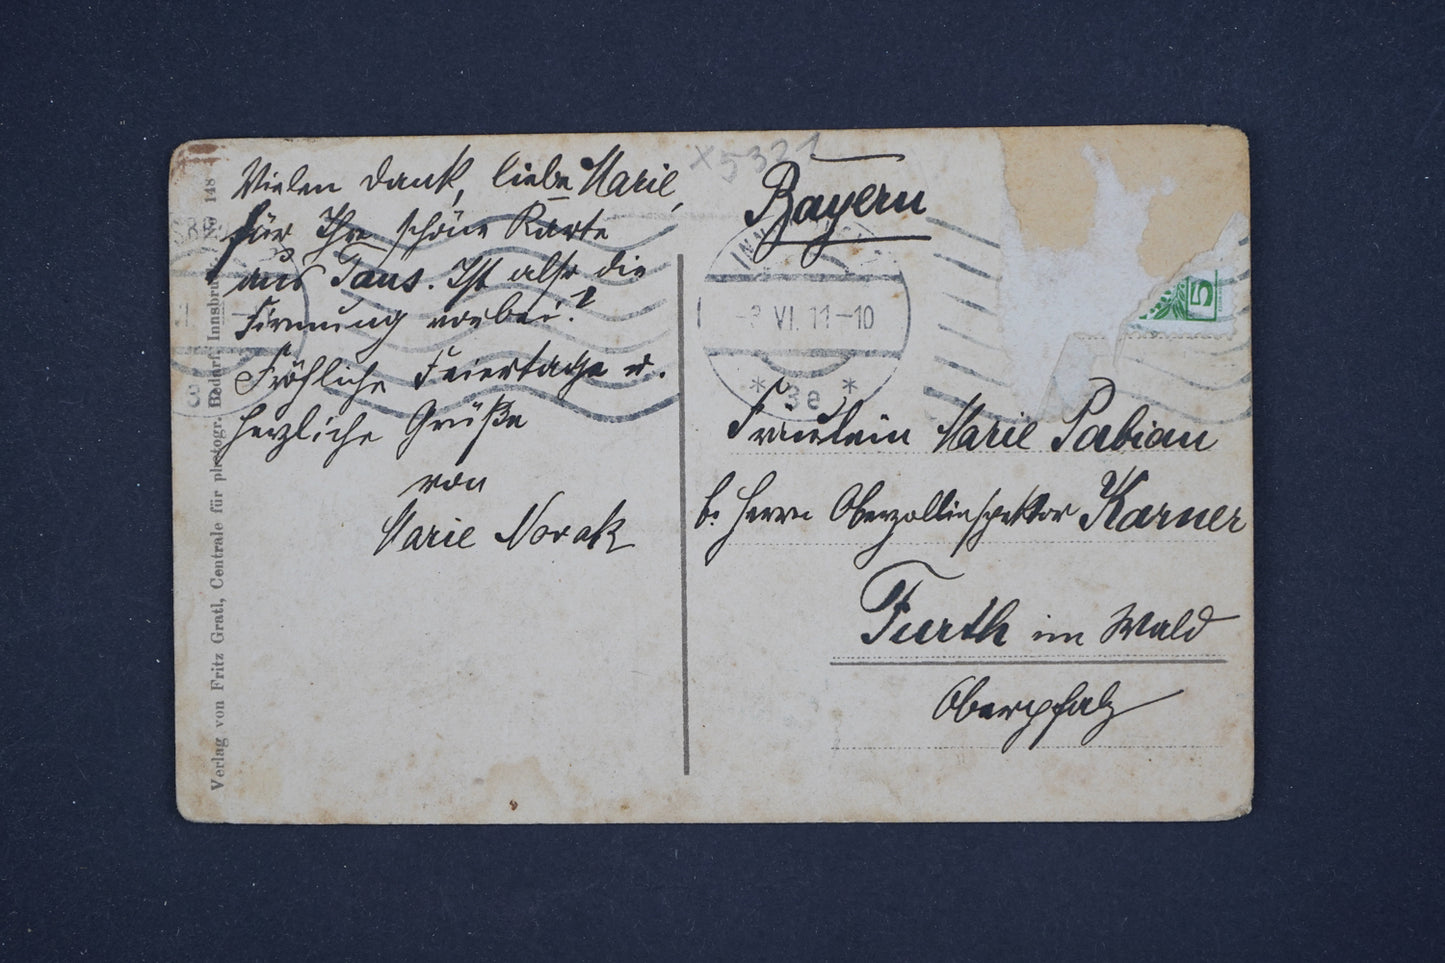 Vielen Dank, liebe Marie,
für Ihre schöne Karte
aus Taus. Ist also die
Firmung vorbei?
Fröhliche Feiertage u.
herzliche Grüße
von
Marie Novak
x5321
Bayern
INN
-3 VI. 11-10
* 3e *
5
Fräulein Marie Pabian
b. Herrn Oberzollinspektor Karner
Furth im Wald
Oberpfalz
Verlag von Fritz Gratl, Centrale für photogr. Bedarf, Innsbruck. 148